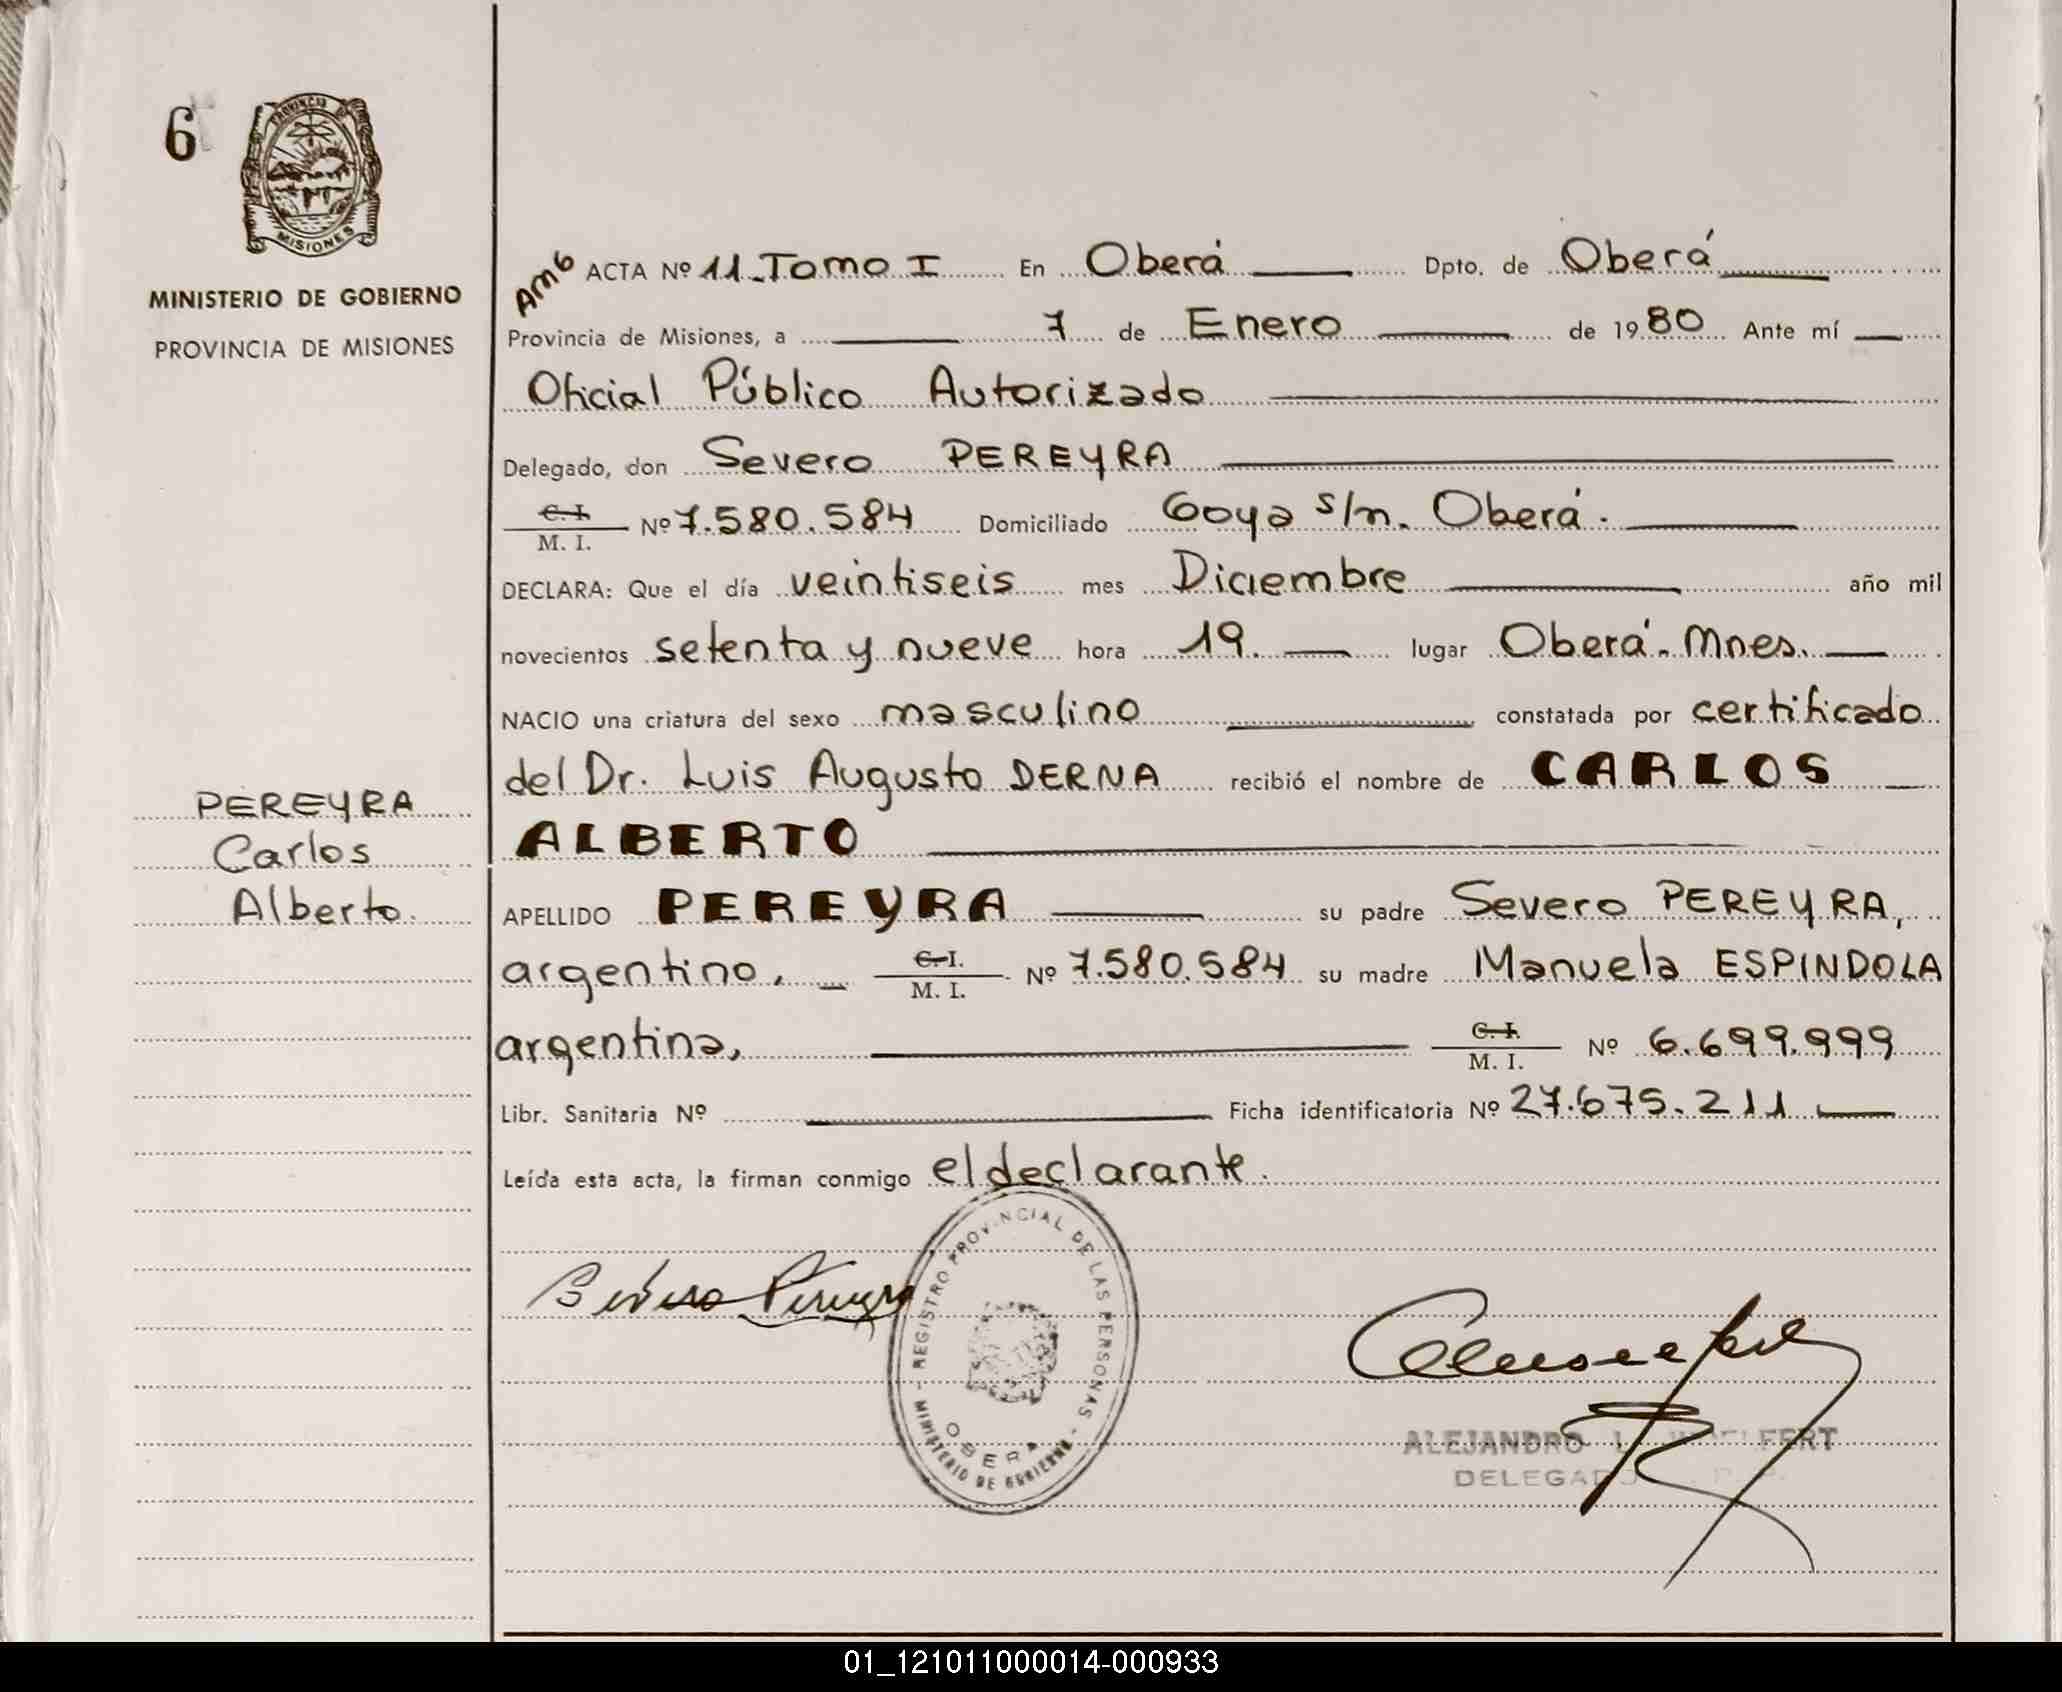 6
PROVINCIA DE
MISIONES
MINISTERIO DE GOBIERNO
PROVINCIA DE MISIONES
PEREYRA
Carlos
Alberto.
ACTA Nº 11-Tomo I En Oberá Dpto. de Oberá
Provincia de Misiones, a 7 de Enero de 1980 Ante mí
Oficial Público Autorizado
Delegado, don Severo PEREYRA
C. I. / M. I. Nº 7.580.584 Domiciliado Goya s/n. Oberá.
DECLARA: Que el día veintiseis mes Diciembre año mil
novecientos setenta y nueve hora 19. lugar Oberá. Mnes.
NACIO una criatura del sexo masculino constatada por certificado
del Dr. Luis Augusto DERNA recibió el nombre de CARLOS
ALBERTO
APELLIDO PEREYRA su padre Severo PEREYRA,
argentino, C. I. / M. I. Nº 7.580.584 su madre Manuela ESPINDOLA
argentina, C. I. / M. I. Nº 6.699.999
Libr. Sanitaria Nº Ficha identificatoria Nº 27.675.211
Leída esta acta, la firman conmigo el declarante.
Severo Pereyra
REGISTRO PROVINCIAL DE LAS PERSONAS
OBERA
MINISTERIO DE GOBIERNO
ALEJANDRO
DELEGADO
01_121011000014-000933